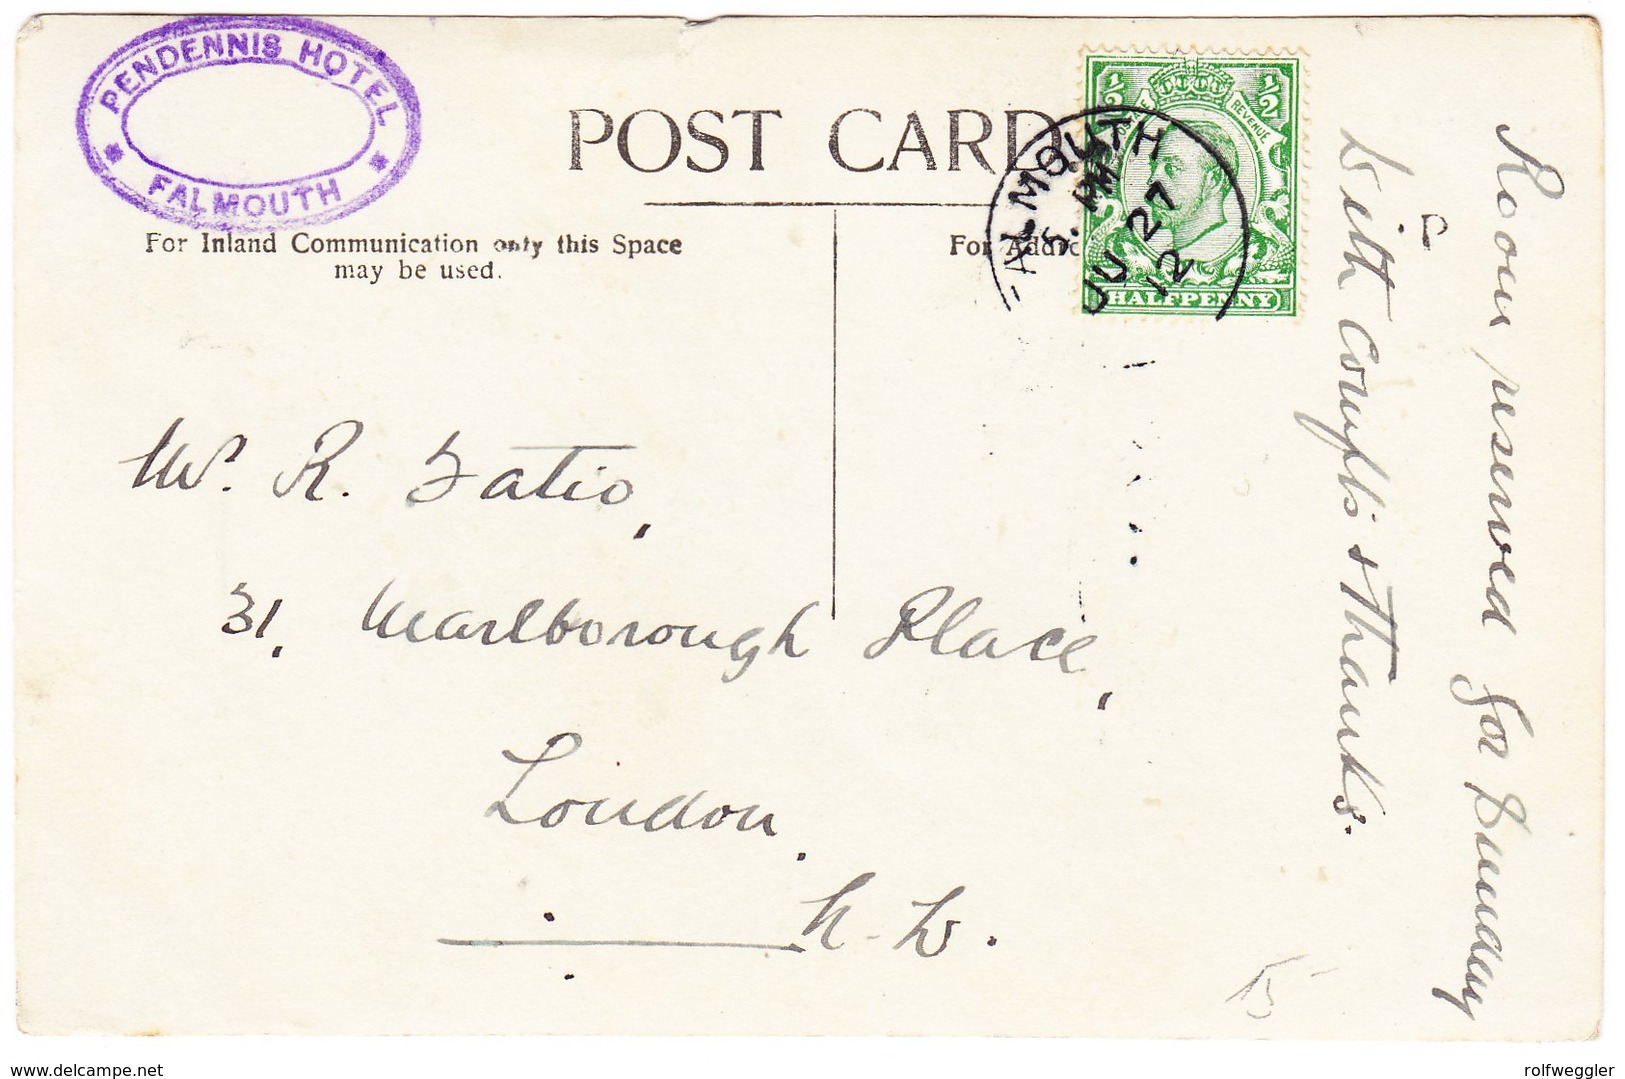 PENDENNIS HOTEL
FALMOUTH
POST CARD
For Inland Communication only this Space
may be used.
For Addre
½ ½
POSTAGE REVENUE
HALFPENNY
FALMOUTH
5. PM
JU 27
12
Mr. R. Fatio,
31, Marlborough Place,
London.
N. W.
Room reserved for Sunday
With Compli's & Thanks.
15
www.delcampe.net
rolfweggler